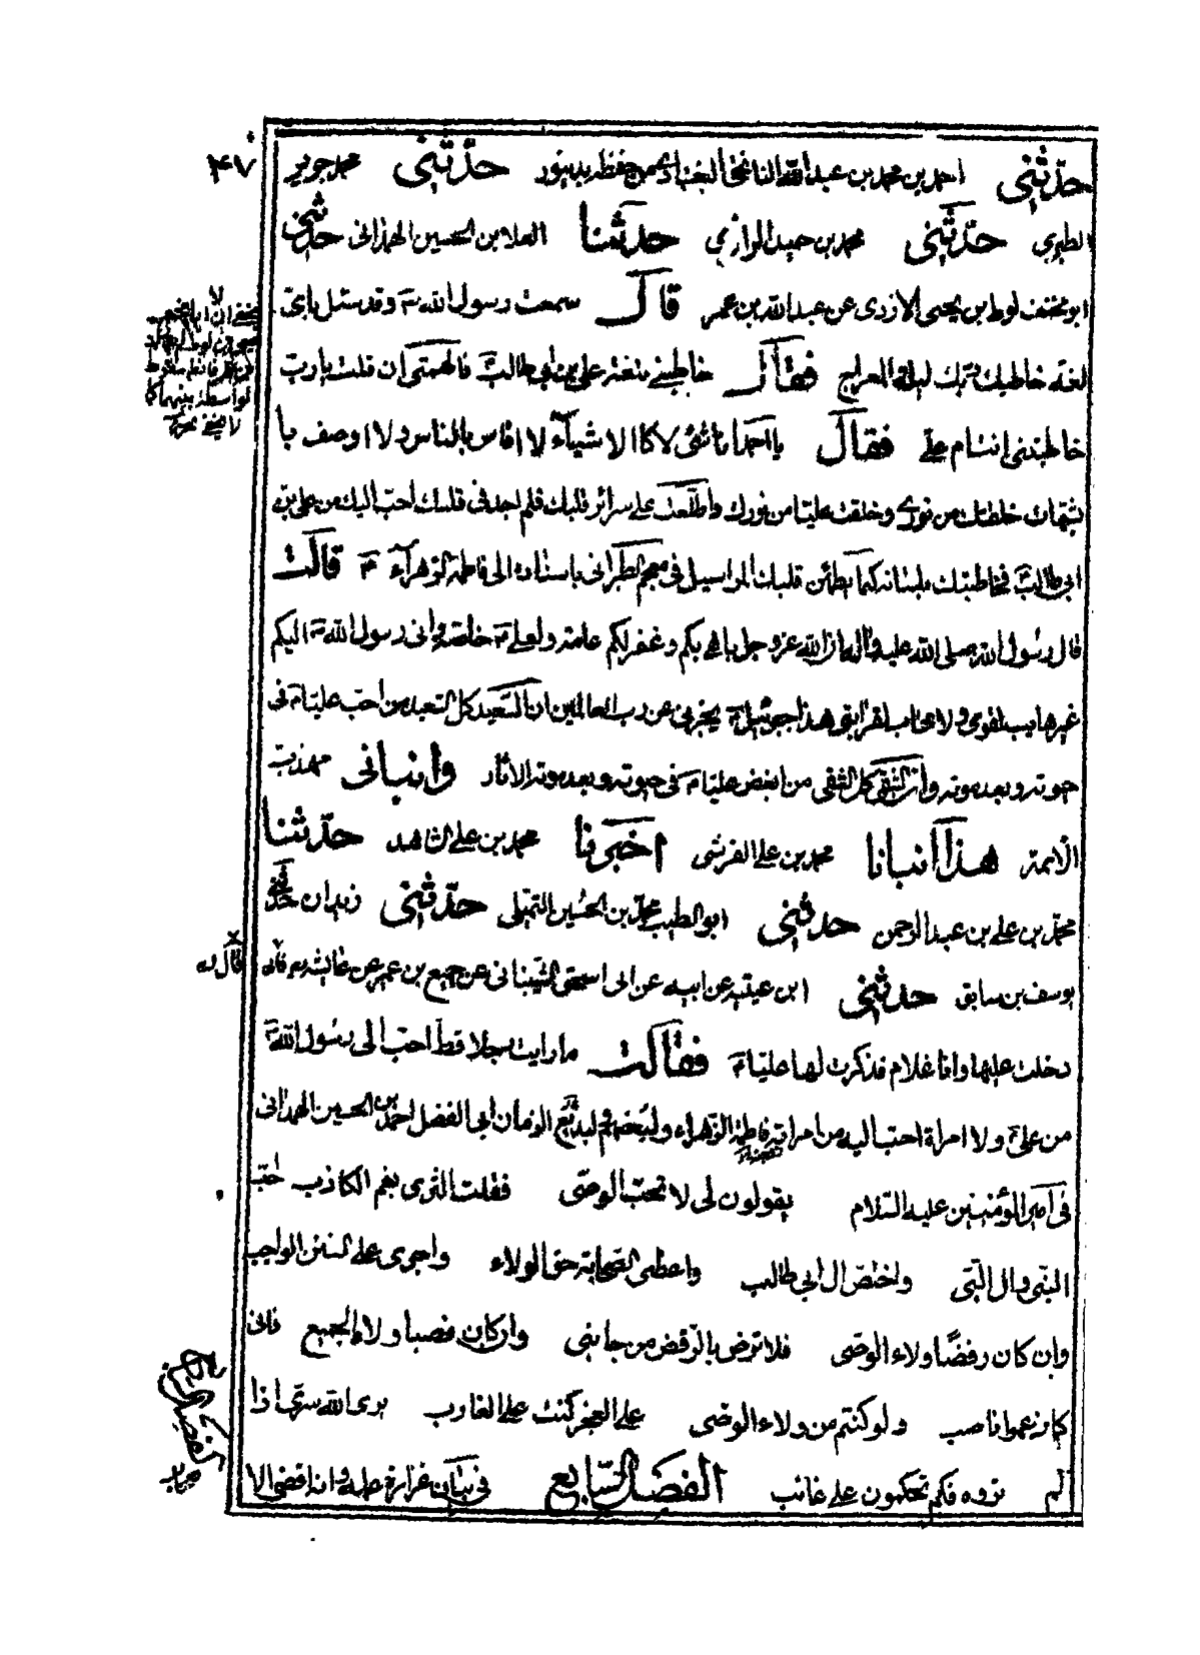 ۴۷
حدّثنى احمد بن محمد بن عبدالله البغدادى من حفظه بدينور حدّثنى محمد جرير
الطبرى حدّثنى محمد بن حميد الرازى حدثنا العلا بن الحسين الهمدانى حدثنى
ابو مخنف لوط بن يحيى الازدى عن عبدالله بن عمر قال سمعت رسول الله ص وقد سئل باىّ
لغة خاطبك ربك ليلة المعراج فقال خاطبنى بلغة على بن ابى طالب فالهمنى ان قلت يا رب
خاطبتنى انت ام على فقال يا احمد انا شئ لا كالاشيآء لا اقاس بالناس ولا اوصف با
شبهات خلقتك من نورى وخلقت عليّا من نورك واطّلعت على سرائر قلبك فلم اجد فى قلبك احبّ اليك من على بن
ابى طالب فخاطبتك بلسانه كيما يطمئن قلبك المراسيل فى معجم الطبرانى باسناده الى فاطمة الزهرآء ع قالت
قال رسول الله صلى الله عليه وآله ان الله عز وجل باهى بكم وغفر لكم عامة ولعلى ع خاصة وانى رسول الله ص اليكم
غير هايب لقومى ولا محاب لقرابتى هذا جبرئيل ع يخبرنى عن رب العالمين ان السّعيد كل السّعيد من احبّ عليّا ع فى
حيوته وبعد موته وانّ الشقى كل الشقى من ابغض عليّا ع فى حيوته وبعد موته الآثار وانبانى مهذب
الائمة هذا انبانا محمد بن على القرشى اخبرنا محمد بن على الشاهد حدّثنا
محمد بن على بن عبدالرحمن حدثنى ابو الطيب محمد بن الحسين التيملى حدّثنى زيدان حدثنى
يوسف بن سابق حدثنى ابن عيينه عن ابيه عن ابى اسحق الشيبانى عن جميع بن عمير عن عايشه
قال
دخلت عليها وانا غلام فذكرت لها عليّا ع فقالت ما رايت رجلا قط احبّ الى رسول الله ص
من على ع ولا امراة احب اليه من امراته فاطمة الزهراء ولبديع الزمان ابى الفضل احمد بن الحسين الهمدانى
فى امير المؤمنين عليه السّلام يقولون لى لا تحبّ الوصى فقلت الثرى بفم الكاذب احبّ
النبى وال النّبى واختصّ ال ابى طالب واعطى الصحابة حق الولاء واجرى على السنن الواجب
وان كان رفضًا ولاء الوصى فلا ترض بالرّفض من جانبى وان كان نصبا ولاء الجميع فانى
كما زعموا ناصب ولو كنتم من ولاء الوصى على العجز كنت على الغارب يرى الله سرّى اذا
لم تروه فكم تحكمون على غائب الفصل السّابع فى بيان غزارة علمه وانه اقضى الا